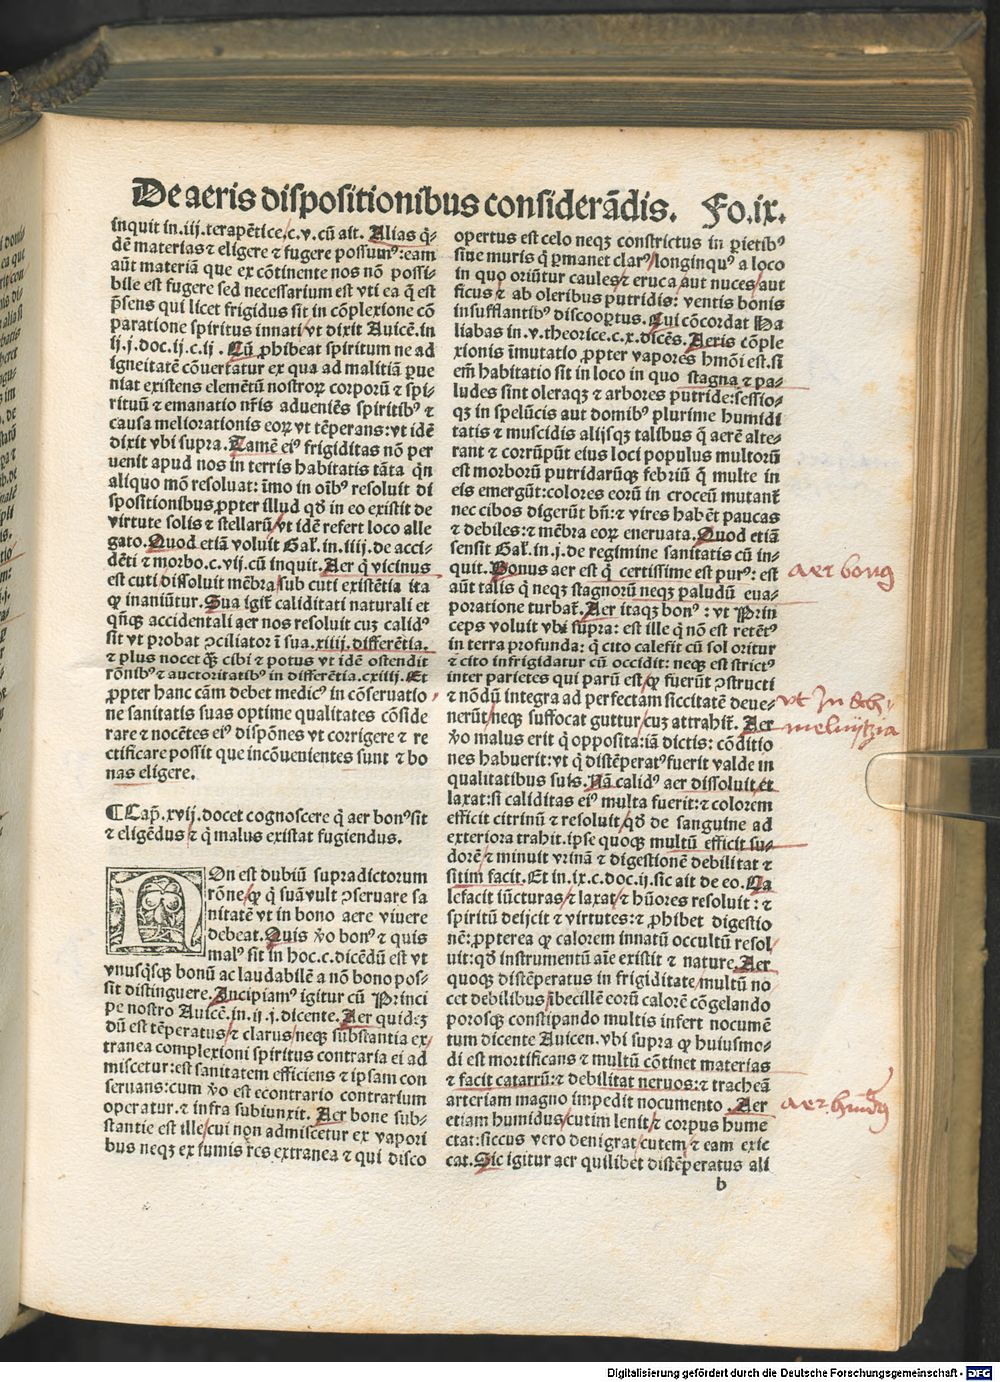 De aeris dispositionibus considerādis. Fo.ix.
inquit in.iij.terapētice.c.v.cū ait. Alias q̄-
dē materias ⁊ eligere ⁊ fugere possumꝰ: eam
aūt materiā que ex cōtinente nos nō possi-
bile est fugere sed necessarium est vti ea q̄ est
p̄sens qui licet frigidus sit in cōplexione cō
paratione spiritus innati/vt dixit Auicē.in
ij.j.doc.ij.c.ij. Cū ꝓhibeat spiritum ne ad
igneitatē cōuertatur ex qua ad malitiā ꝑue
niat existens elemētū nostroꝝ corporū ⁊ spi-
rituū ⁊ emanatio nr̄is adueniēs spiritibꝰ ⁊
causa meliorationis eoꝝ vt tēperans: vt idē
dixit vbi supra. Tamē eiꝰ frigiditas nō per
uenit apud nos in terris habitatis tāta qn̄
aliquo mō resoluat: īmo in oībꝰ resoluit di
spositionibus ꝓpter illud qđ in eo existit de
virtute solis ⁊ stellarū/vt idē refert loco alle
gato. Quod etiā voluit Gal̄.in.iiij.de acci-
dēti ⁊ morbo.c.vij.cū inquit. Aer q̄ vicinus
est cuti/dissoluit mēbra/sub cuti existētia ita
ꝙ inaniūtur. Sua igit̄ caliditati naturali et
qn̄qꝫ accidentali aer nos resoluit cuꝫ calidꝰ
sit vt probat ꝯciliator ī sua.xiiij.differētia.
⁊ plus nocet q̄ꝫ cibi ⁊ potus vt idē ostendit
rōnibꝰ ⁊ auctoritatibꝰ in differētia.cxiiij. Et
ꝓpter hanc cām debet medicꝰ in cōseruatio
ne sanitatis suas optime qualitates cōside
rare ⁊ nocētes eiꝰ dispōnes vt corrigere ⁊ re
ctificare possit que incōuenientes sunt ⁊ bo
nas eligere.
¶Cap̄.xvij.docet cognoscere q̄ aer bonꝰ sit
⁊ eligēdus/⁊ q̄ malus existat fugiendus.
NOn est dubiū supradictorum
rōne/ꝙ q̄ suā vult ꝯseruare sa
nitatē vt in bono aere viuere
debeat. Quis ꝟo bonꝰ ⁊ quis
malꝰ sit in hoc.c.dicēdū est vt
vnusqsqꝫ bonū ac laudabilē a nō bono pos-
sit distinguere. Incipiamꝰ igitur cū Princi
pe nostro Auicē.in.ij.j.dicente. Aer quideꝫ
dū est tēperatus/⁊ clarus/neqꝫ substantia ex
tranea complexioni spiritus contraria ei ad
miscetur: est sanitatem efficiens ⁊ ipsam con
seruans: cum ꝟo est econtrario contrarium
operatur. ⁊ infra subiunxit. Aer bone sub-
stantie est ille/cui non admiscetur ex vapori
bus neqꝫ ex fumis res extranea ⁊ qui disco
opertus est celo neqꝫ constrictus in ꝑietibꝰ
siue muris q̄ ꝑmanet clarꝰ/longinquꝰ a loco
in quo oriūtur caules/⁊ eruca/aut nuces/aut
ficus ⁊ ab oleribus putridis: ventis bonis
insufflantibꝰ discooꝑtus. Cui cōcordat Ha
liabas in.v.theorice.c.x.dicēs. Aeris cōple
xionis īmutatio ꝓpter vapores hmōi est. si
em̄ habitatio sit in loco in quo stagna ⁊ pa-
ludes sint oleraqꝫ ⁊ arbores putride: sessio-
qꝫ in spelūcis aut domibꝰ plurime humidi
tatis ⁊ muscidis alijsqꝫ talibus q̄ aerē alte-
rant ⁊ corrūpūt eius loci populus multorū
est morborū putridarūqꝫ febriū q̄ multe in
eis emergūt: colores eorū in croceū mutant̄
nec cibos digerūt bn̄: ⁊ vires habēt paucas
⁊ debiles: ⁊ mēbra eoꝝ eneruata. Quod etiā
sensit Gal̄.in.j.de regimine sanitatis cū in-
quit. Bonus aer est q̄ certissime est purꝰ: est
aūt talis q̄ neqꝫ stagnorū neqꝫ paludū eua-
poratione turbat̄. Aer itaqꝫ bonꝰ: vt Prin
ceps voluit vbi supra: est ille q̄ nō est retētꝰ
in terra profunda: q̄ cito calefit cū sol oritur
⁊ cito infrigidatur cū occidit: neqꝫ est strictꝰ
inter parietes qui parū est/ꝙ fuerūt ꝯstructi
⁊ nōdū integra ad perfectam siccitatē deue-
nerūt/neqꝫ suffocat guttur/cuꝫ attrahit̄. Aer
ꝟo malus erit q̄ opposita: iā dictis: cōditio
nes habuerit: vt q̄ distēperatꝰ fuerit valde in
qualitatibus suis. Nā calidꝰ aer dissoluit/et
laxat: si caliditas eiꝰ multa fuerit: ⁊ colorem
efficit citrinū ⁊ resoluit/qđ de sanguine ad
exteriora trahit. ipse quoqꝫ multū efficit su-
dorē/⁊ minuit vrinā ⁊ digestionē debilitat ⁊
sitim facit. Et in.ix.c.doc.ij.sic ait de eo. Ca
lefacit iūcturas/⁊ laxat/⁊ hūores resoluit: ⁊
spiritū deijcit ⁊ virtutes: ⁊ ꝓhibet digestio
nē: ꝓpterea ꝙ calorem innatū occultū resol
uit: qđ instrumentū aīe existit ⁊ nature. Aer
quoqꝫ distēperatus in frigiditate/multū no
cet debilibus/ībecillē eorū calorē cōgelando
porosqꝫ constipando multis infert nocumē
tum dicente Auicen. vbi supra ꝙ huiusmo-
di est mortificans ⁊ multū cōtinet materias
⁊ facit catarrū: ⁊ debilitat neruos: ⁊ tracheā
arteriam magno impedit nocumento. Aer
etiam humidus/cutim lenit/⁊ corpus hume
ctat: siccus vero denigrat/cutem/⁊ eam exic
cat. Sic igitur aer quilibet distēperatus ali
b
aer bonꝰ
aer hūidꝰ
Digitalisierung gefördert durch die Deutsche Forschungsgemeinschaft - DFG